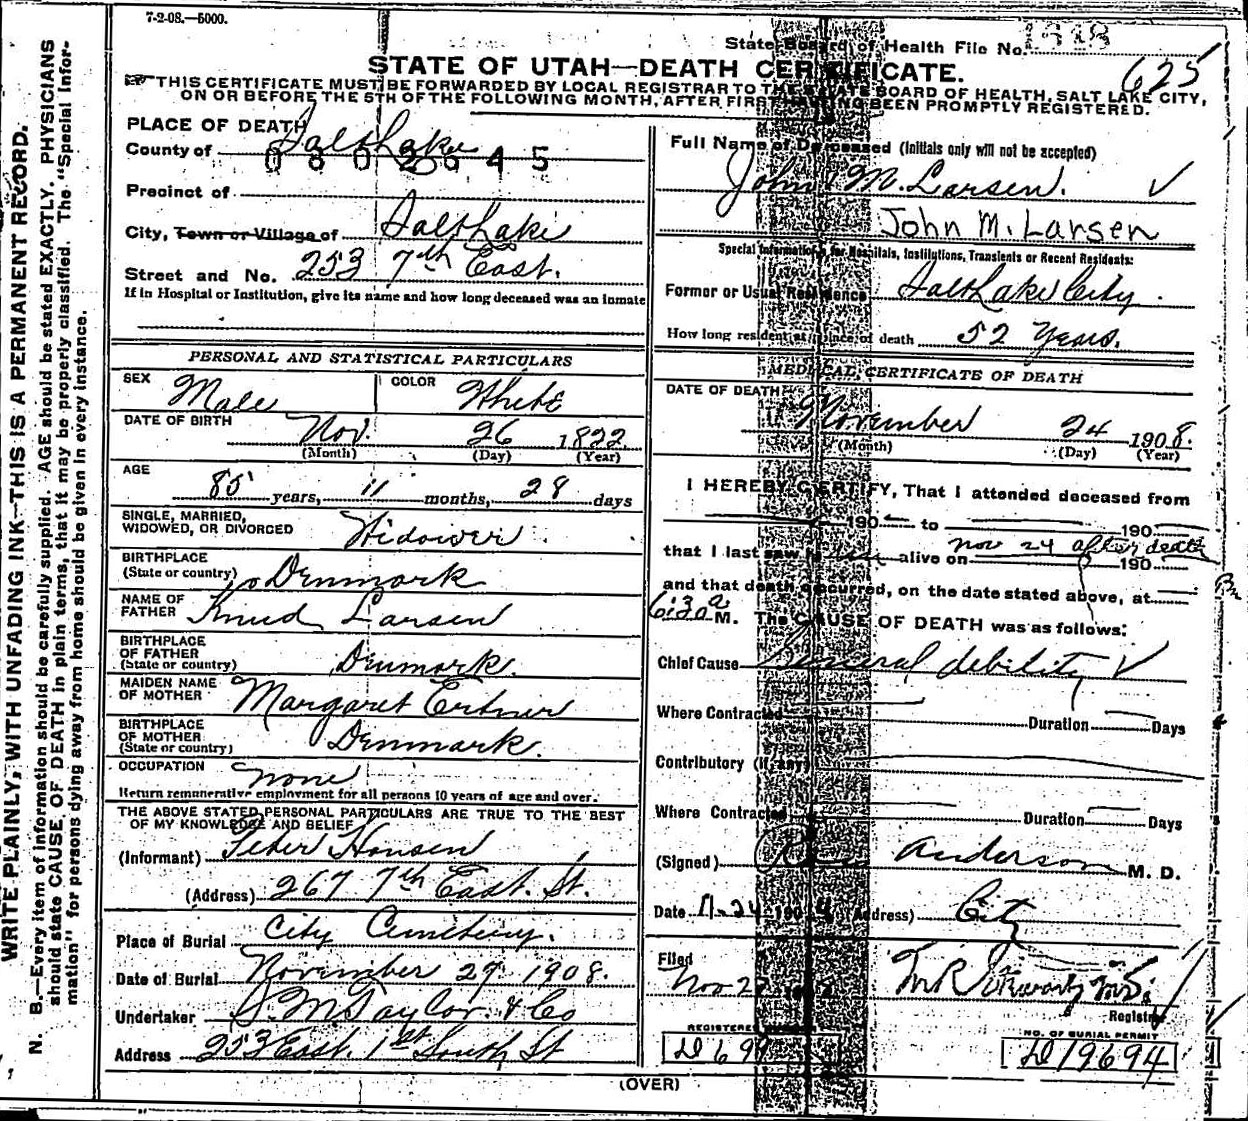 7-2-08.—5000.
State Board of Health File No. 1918
625
STATE OF UTAH—DEATH CERTIFICATE.
THIS CERTIFICATE MUST BE FORWARDED BY LOCAL REGISTRAR TO THE STATE BOARD OF HEALTH, SALT LAKE CITY,
ON OR BEFORE THE 5TH OF THE FOLLOWING MONTH, AFTER FIRST HAVING BEEN PROMPTLY REGISTERED.
WRITE PLAINLY, WITH UNFADING INK—THIS IS A PERMANENT RECORD.
N. B.—Every item of information should be carefully supplied. AGE should be stated EXACTLY. PHYSICIANS
should state CAUSE OF DEATH in plain terms, that it may be properly classified. The "Special Infor-
mation" for persons dying away from home should be given in every instance.
PLACE OF DEATH
County of Salt Lake
0802645
Precinct of
City, Town or Village of Salt Lake
Street and No. 253 7th East.
If in Hospital or Institution, give its name and how long deceased was an inmate
PERSONAL AND STATISTICAL PARTICULARS
SEX Male COLOR White
DATE OF BIRTH Nov. 26 1822
(Month) (Day) (Year)
AGE
85 years, 11 months, 28 days
SINGLE, MARRIED,
WIDOWED, OR DIVORCED Widower
BIRTHPLACE
(State or country) Denmark
NAME OF
FATHER Knud Larsen
BIRTHPLACE
OF FATHER
(State or country) Denmark
MAIDEN NAME
OF MOTHER Margaret Ertner
BIRTHPLACE
OF MOTHER
(State or country) Denmark
OCCUPATION none
Return remunerative employment for all persons 10 years of age and over.
THE ABOVE STATED PERSONAL PARTICULARS ARE TRUE TO THE BEST
OF MY KNOWLEDGE AND BELIEF
(Informant) Peter Hansen
(Address) 267 7th East. St.
Place of Burial City Cemetery.
Date of Burial November 27 1908.
Undertaker S. M. Taylor & Co
Address 253 East 1st South St
Full Name of Deceased (Initials only will not be accepted)
John M. Larsen.
John M. Larsen
Special Information for Hospitals, Institutions, Transients or Recent Residents:
Former or Usual Residence Salt Lake City.
How long resident at place of death 52 Years.
MEDICAL CERTIFICATE OF DEATH
DATE OF DEATH
November 24 1908.
(Month) (Day) (Year)
I HEREBY CERTIFY, That I attended deceased from
190 to 190
that I last saw him alive on Nov 24 after death 190
and that death occurred, on the date stated above, at
6:30 a M. The CAUSE OF DEATH was as follows:
Chief Cause General debility
Where Contracted Duration Days
Contributory (if any)
Where Contracted Duration Days
(Signed) Anderson M. D.
Date 11-24 190 (Address) City
Filed
Nov 27
Registrar
REGISTERED NUMBER
D 699
NO. OF BURIAL PERMIT
D19694
(OVER)